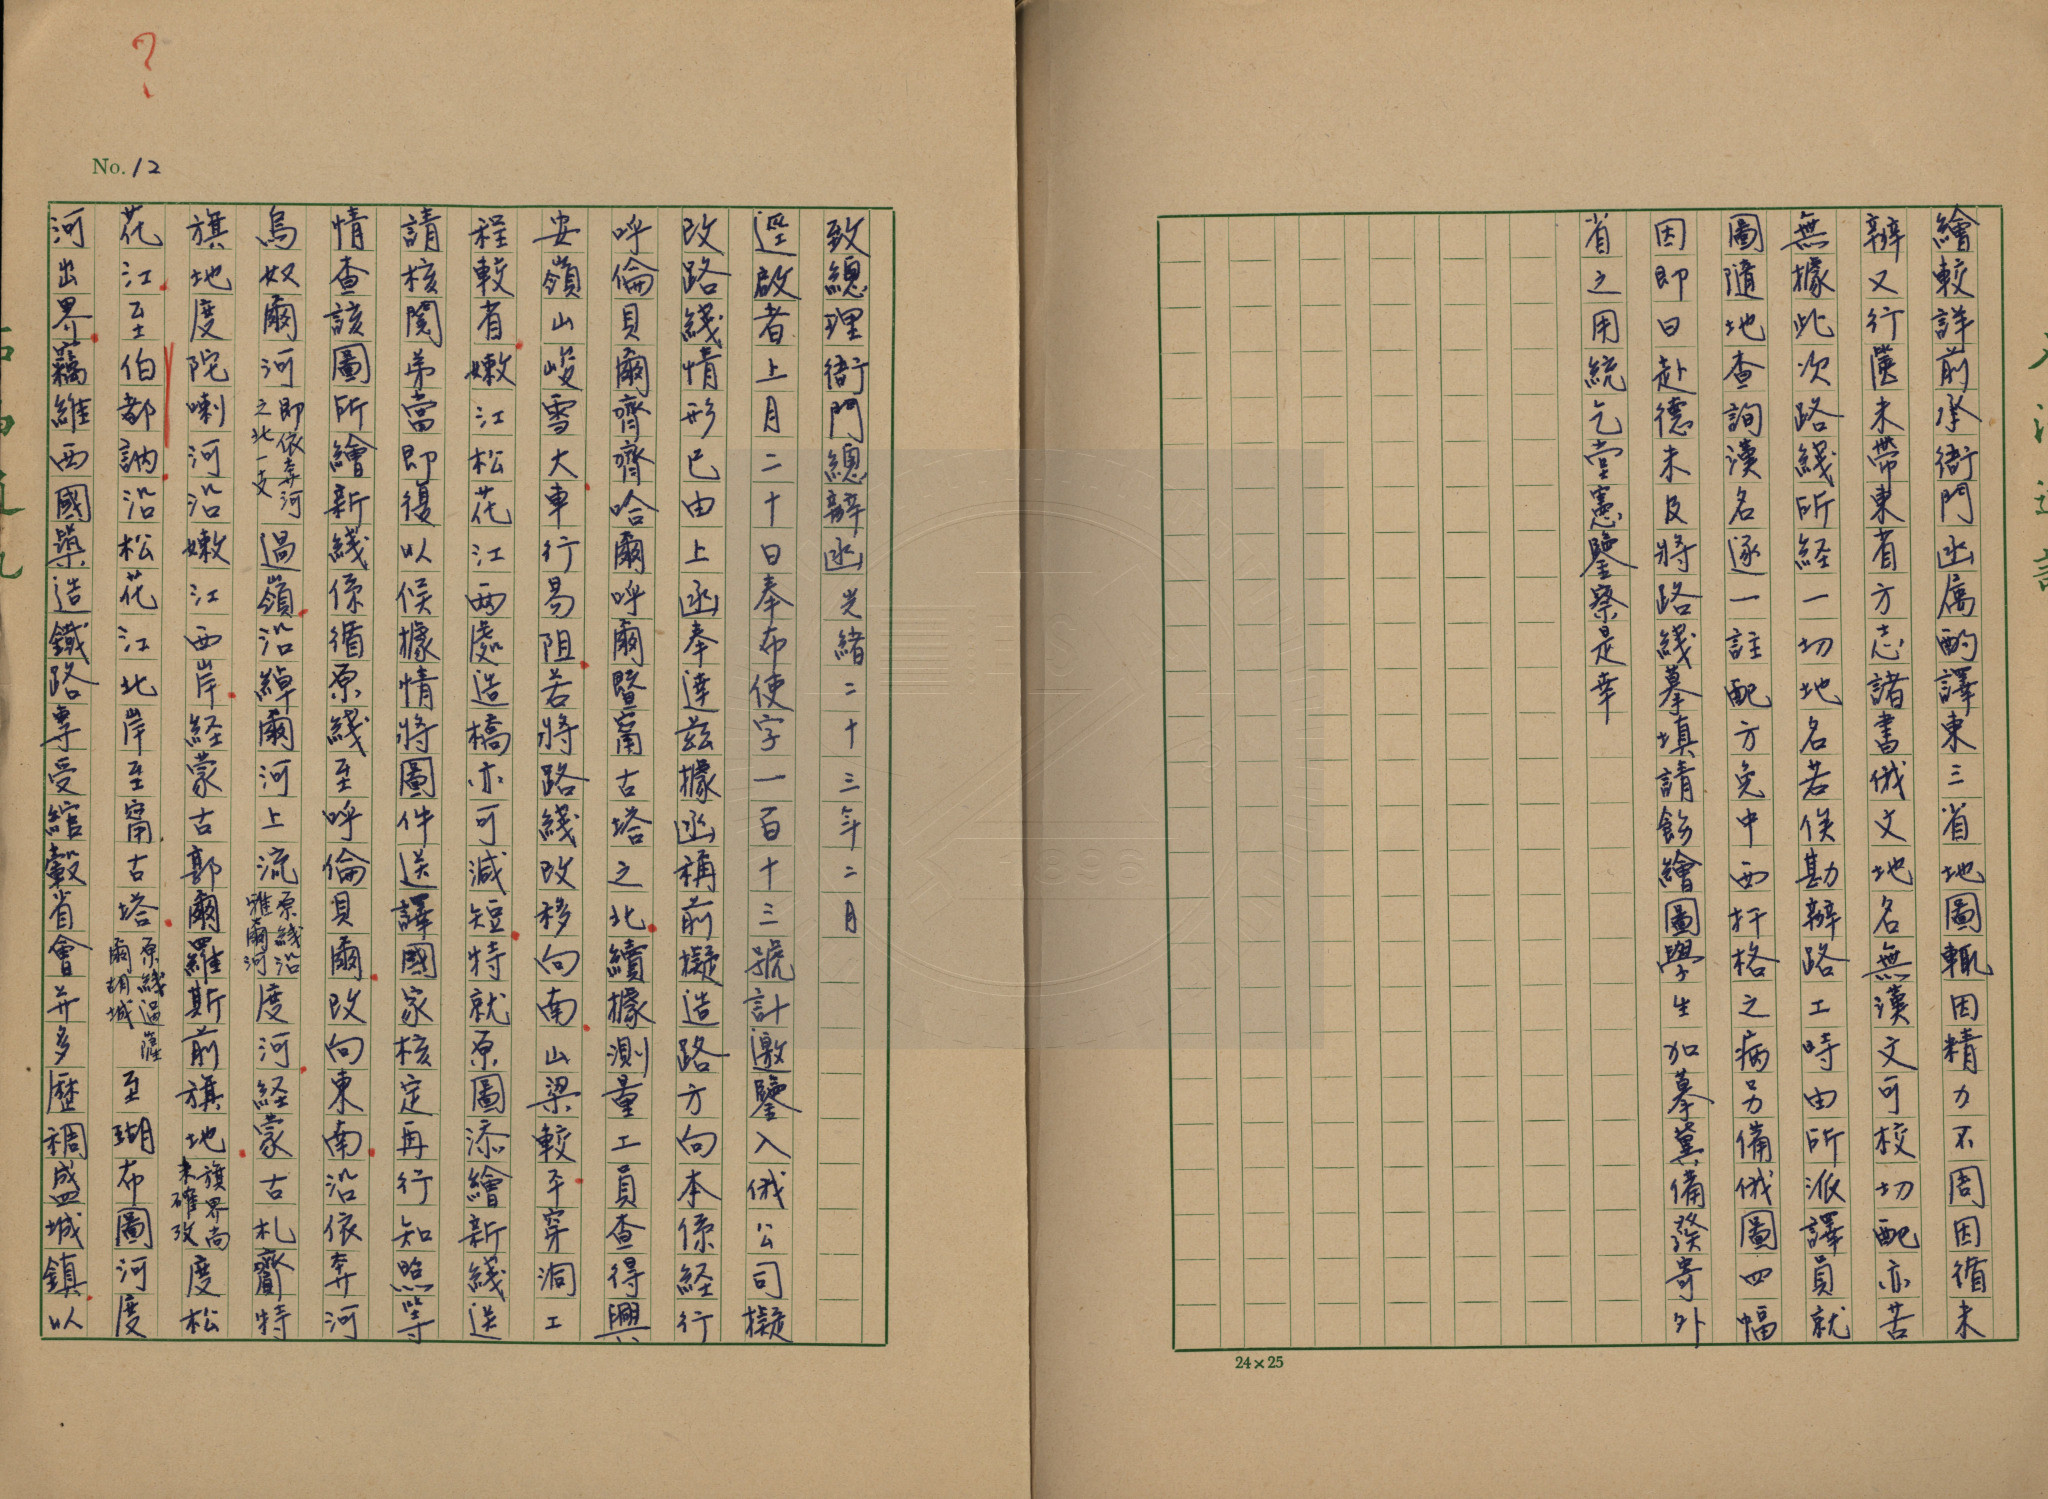 繪較詳前承衙門函屬酌譯東三省地圖輒因精力不周因循未
辦又行篋未帶東省方志諸書俄文地名無漢文可校切配亦苦
無據此次路綫所経一切地名若俟勘辦路工時由所派譯員就
圖隨地查詢漢名逐一註配方免中西扞格之病另備俄圖四幅
因即日赴德未及將路綫摹填請飭繪圖學生加摹冀備發寄外
省之用統乞堂憲鑒察是幸
24×25
?
No. 12
致總理衙門總辦函光緒二十三年二月
逕啟者上月二十日奉布使字一百十三號計邀鑒入俄公司擬
改路綫情形已由上函奉達茲據函稱前擬造路方向本係経行
呼倫貝爾齊齊哈爾呼爾暨甯古塔之北續據測量工員查得興
安嶺山峻雪大車行易阻若將路綫改移向南山梁較平穿洞工
程較省嫩江松花江両處造橋亦可減短特就原圖添繪新綫送
請核閱弟當即復以候據情將圖件送譯國家核定再行知照等
情查該圖所繪新綫係循原綫至呼倫貝爾改向東南沿依奔河
烏奴爾河即依奔河之北一支過嶺沿綽爾河上流原綫沿雅爾河度河経蒙古札齎特
旗地度陀喇河沿嫩江西岸経蒙古郭爾羅斯前旗地旗界尚未確攷度松
花江至伯都訥沿松花江北岸至甯古塔原綫過薩爾胡城至瑚布圖河度
河出界竊維西國築造鐵路專受綰轂省會并多歷稠盛城鎮以